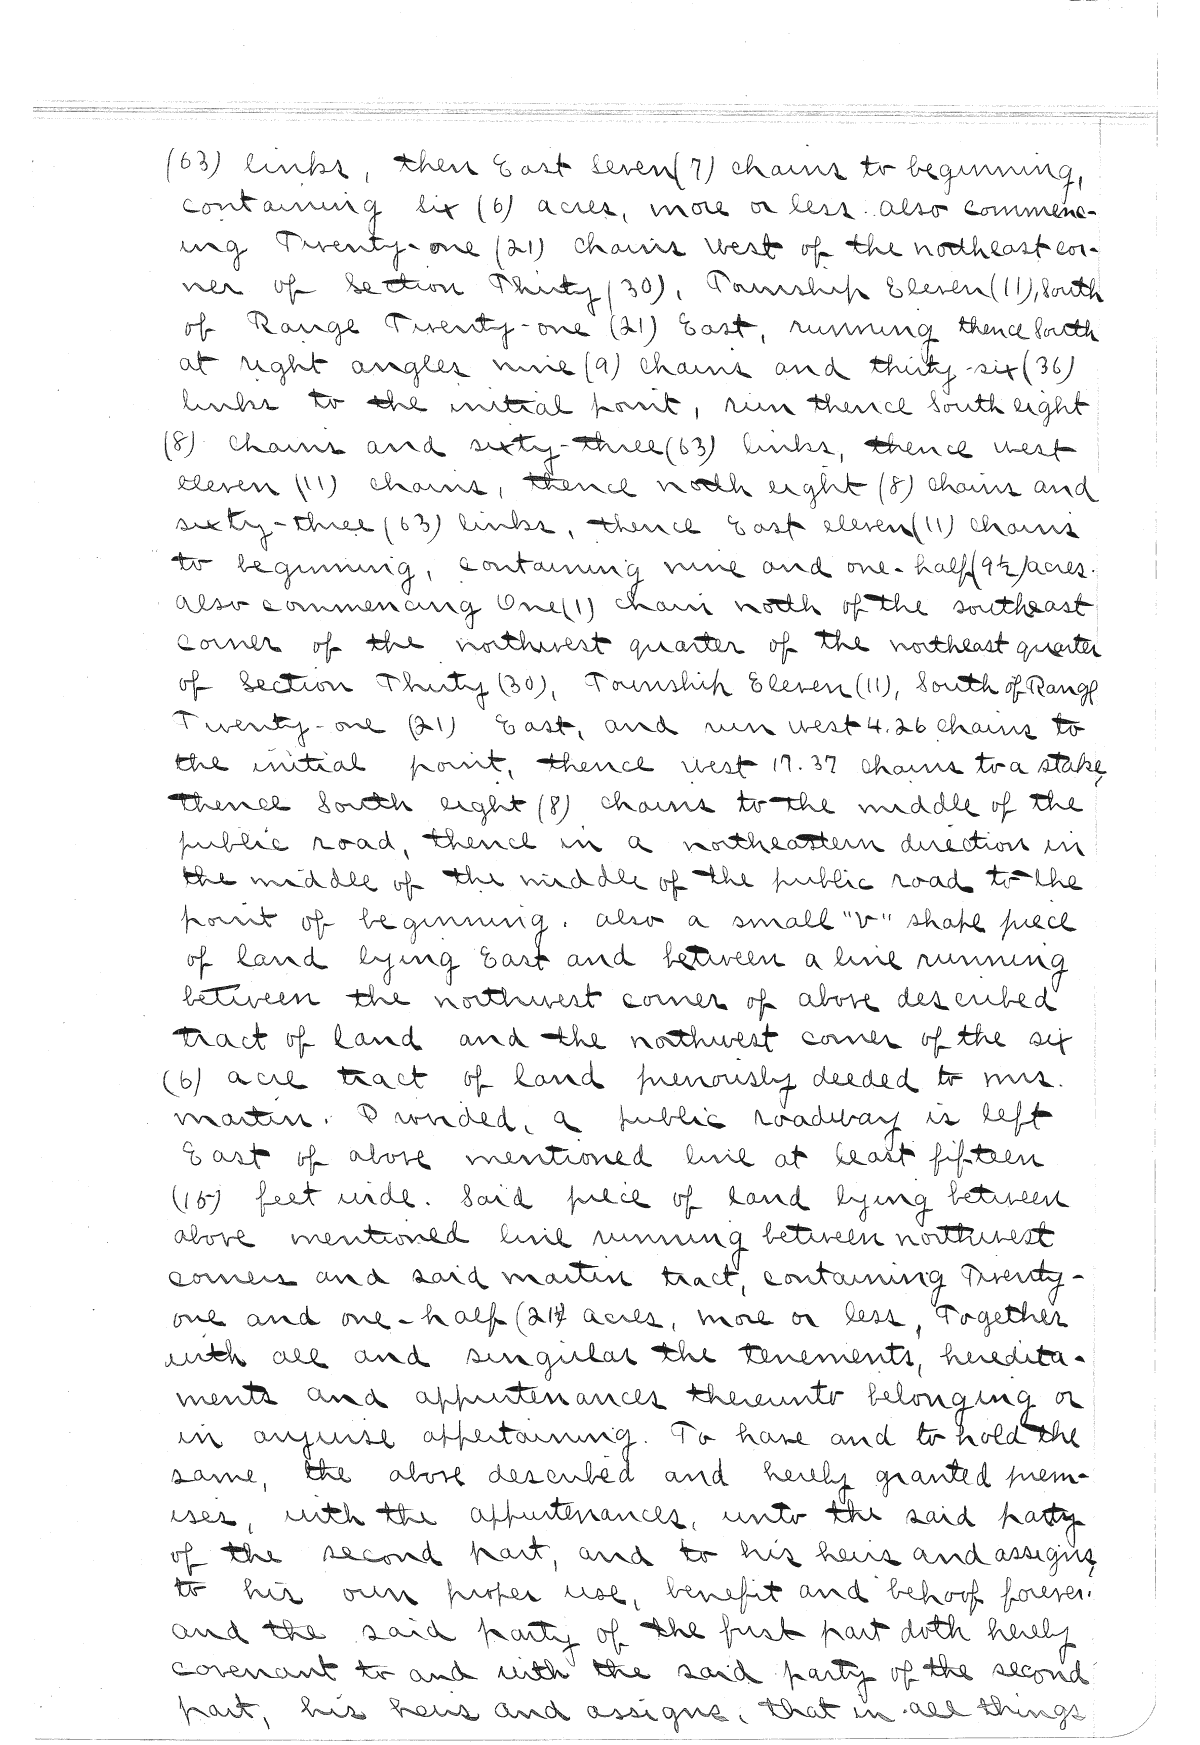 (63) links, then East Seven (7) chains to beginning,
containing six (6) acres, more or less. also commenc-
ing Twenty-one (21) chains west of the northeast cor-
ner of Section Thirty (30), Township Eleven (11), South
of Range Twenty-one (21) East, running thence South
at right angles nine (9) chains and thirty-six (36)
links to the initial point, run thence South eight
(8) chains and sixty-three (63) links, thence west
eleven (11) chains, thence north eight (8) chains and
sixty-three (63) links, thence East eleven (11) chains
to beginning, containing nine and one-half (9½) acres.
also commencing One (1) chain north of the southeast
corner of the northwest quarter of the northeast quarter
of Section Thirty (30), Township Eleven (11), South of Range
Twenty-one (21) East, and run west 4.26 chains to
the initial point, thence west 17.37 chains to a stake,
thence South eight (8) chains to the middle of the
public road, thence in a northeastern direction in
the middle of the middle of the public road to the
point of beginning. also a small "V" shape piece
of land lying East and between a line running
between the northwest corner of above described
tract of land and the northwest corner of the six
(6) acre tract of land previously deeded to mrs.
martin. Provided, a public roadway is left
East of above mentioned line at least fifteen
(15) feet wide. Said piece of land lying between
above mentioned line running between northwest
corners and said martin tract, containing Twenty-
one and one-half (21½ acres, more or less, Together
with all and singular the tenements, heredita-
ments and appurtenances thereunto belonging or
in anywise appertaining. To have and to hold the
same, the above described and hereby granted prem-
ises, with the appurtenances, unto the said party
of the second part, and to his heirs and assigns,
to his own proper use, benefit and behoof forever.
and the said party of the first part doth hereby
covenant to and with the said party of the second
part, his heirs and assigns, that in all things